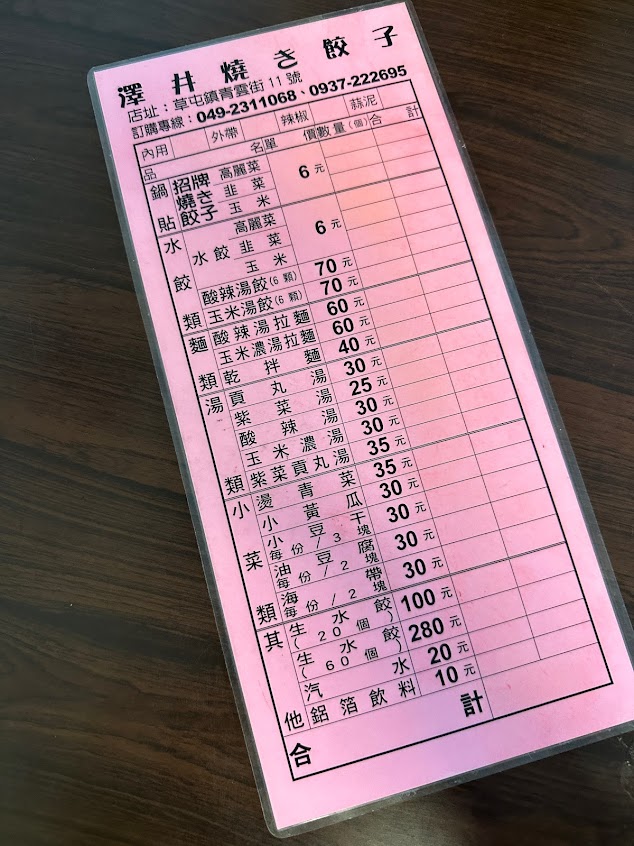 澤井燒き餃子
店址：草屯鎮青雲街11號
訂購專線：049-2311068、0937-222695
內用 外帶 辣椒 蒜泥
品名單 價 數量(個) 合計
鍋貼 招牌燒き餃子 高麗菜 6元
韭菜
玉米
水餃類 水餃 高麗菜 6元
韭菜
玉米
酸辣湯餃(6顆) 70元
玉米湯餃(6顆) 70元
麵類 酸辣湯拉麵 60元
玉米濃湯拉麵 60元
乾拌麵 40元
湯類 貢丸湯 30元
紫菜湯 25元
酸辣湯 30元
玉米濃湯 30元
紫菜貢丸湯 35元
小菜類 燙青菜 35元
小黃瓜 30元
小豆干 30元
每份/3塊
油豆腐 30元
每份/2塊
海帶 30元
每份/2塊
其他 生水餃 100元
(20個)
生水餃 280元
(60個)
汽水 20元
鋁箔飲料 10元
合計